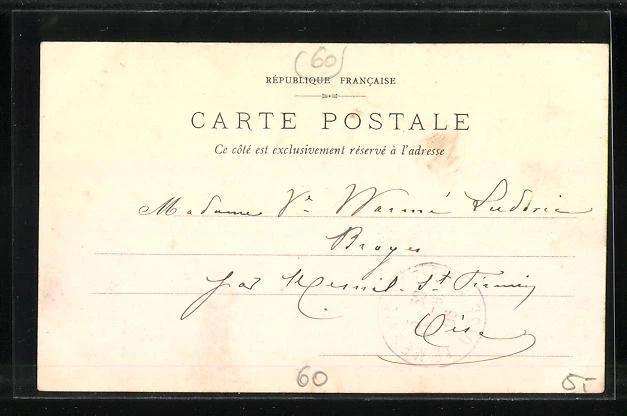 (60)
RÉPUBLIQUE FRANÇAISE
CARTE POSTALE
Ce côté est exclusivement réservé à l'adresse
Madame Vᵉ Warmé Ludovic
Broyes
par Mesnil-St Firmin
Oise
60